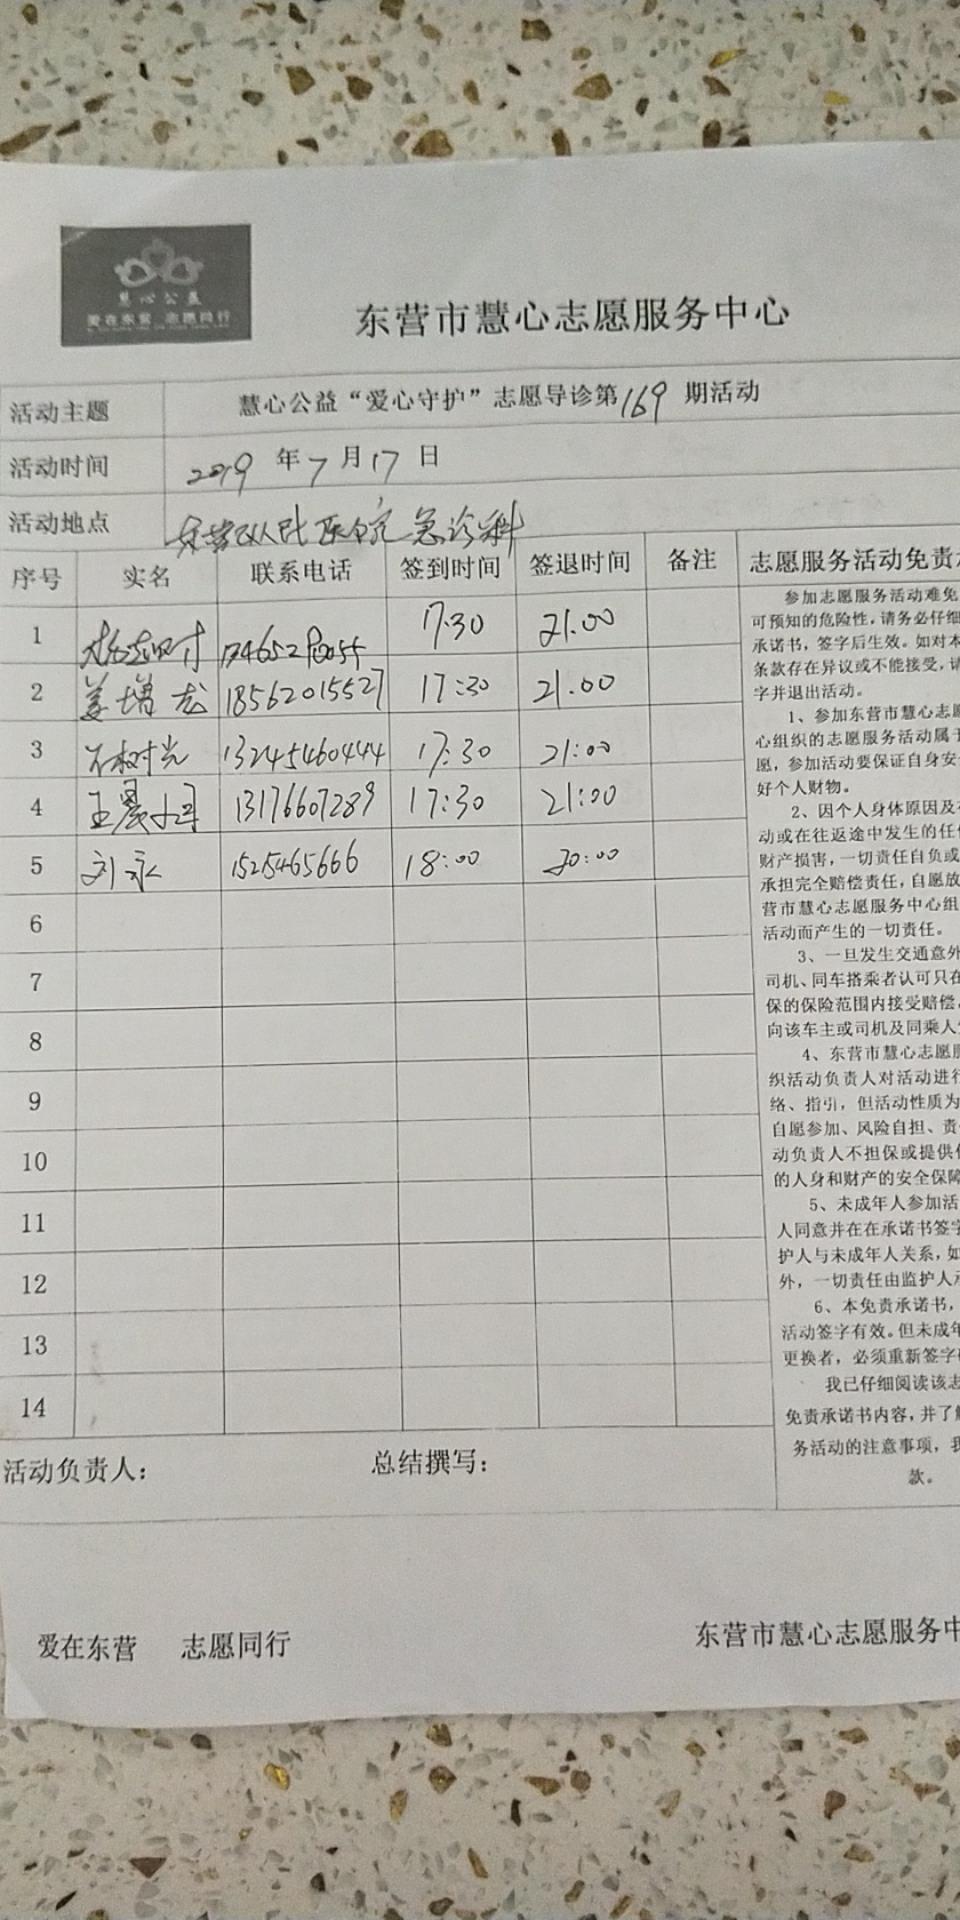 慧心公益
爱在东营 志愿同行
东营市慧心志愿服务中心
活动主题 慧心公益“爱心守护”志愿导诊第169期活动
活动时间 2019年7月17日
活动地点 东营区人民医院急诊科
序号 实名 联系电话 签到时间 签退时间 备注
1 17:30 21.00
2 姜增龙 18562015527 17:30 21.00
3 13245460444 17:30 21:00
4 王晨 13176607289 17:30 21:00
5 刘永 1525465666 18:00 20:00
6
7
8
9
10
11
12
13
14
活动负责人： 总结撰写：
志愿服务活动免责
参加志愿服务活动难免
可预知的危险性，请务必仔细
承诺书，签字后生效。如对本
条款存在异议或不能接受，请
字并退出活动。
1、参加东营市慧心志愿
心组织的志愿服务活动属于
愿，参加活动要保证自身安全
好个人财物。
2、因个人身体原因及
动或在往返途中发生的任何
财产损害，一切责任自负或
承担完全赔偿责任，自愿放
营市慧心志愿服务中心组
活动而产生的一切责任。
3、一旦发生交通意外
司机、同车搭乘者认可只在
保的保险范围内接受赔偿，
向该车主或司机及同乘人
4、东营市慧心志愿服
织活动负责人对活动进行
络、指引，但活动性质为
自愿参加、风险自担、责
动负责人不担保或提供
的人身和财产的安全保障
5、未成年人参加活
人同意并在在承诺书签字
护人与未成年人关系，如
外，一切责任由监护人承
6、本免责承诺书，
活动签字有效。但未成年
更换者，必须重新签字
我已仔细阅读该志
免责承诺书内容，并了解
务活动的注意事项，我
款。
爱在东营 志愿同行
东营市慧心志愿服务中